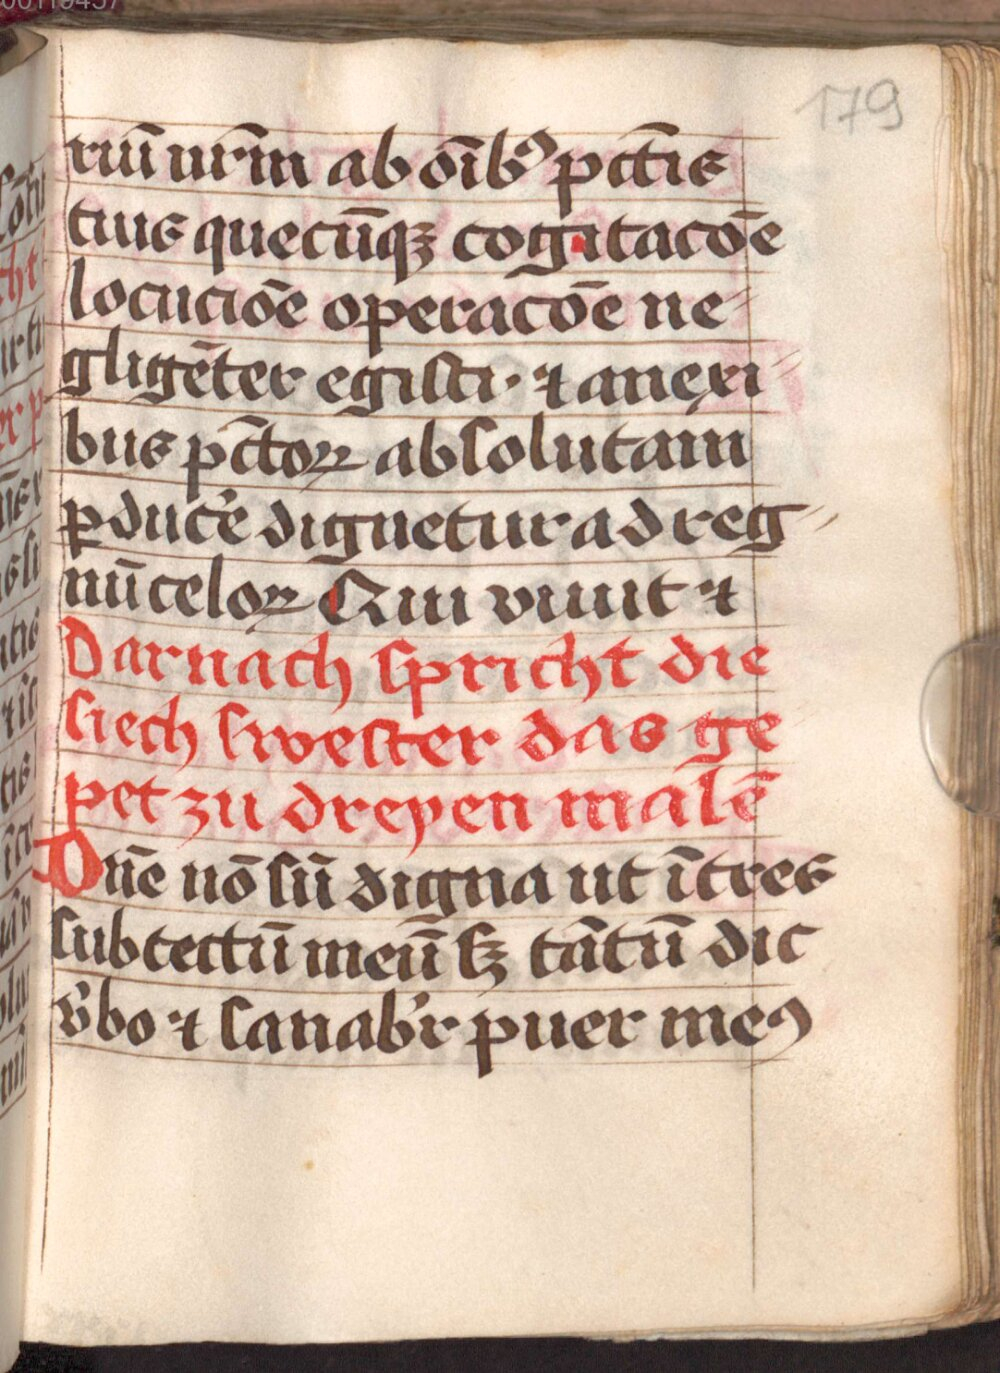 00119457
179
riū vr̄m ab oīb⁹ pctīs
tuis quecūqꝫ cogitacōe
locucioē operacōe ne
gligēter egisti · ⁊ a nexi
bus pctōꝝ absolutam
ꝑducˀe dignetur ad reg
nū celoꝝ Qui viuit ⁊
Darnach spricht die
siech swester das ge
pet zu dreyen malē
Dn̄e nō sū digna ut ītres
sub tectū meū sꝫ tātū dic
vˀbo ⁊ sanabˀr puer me⁹